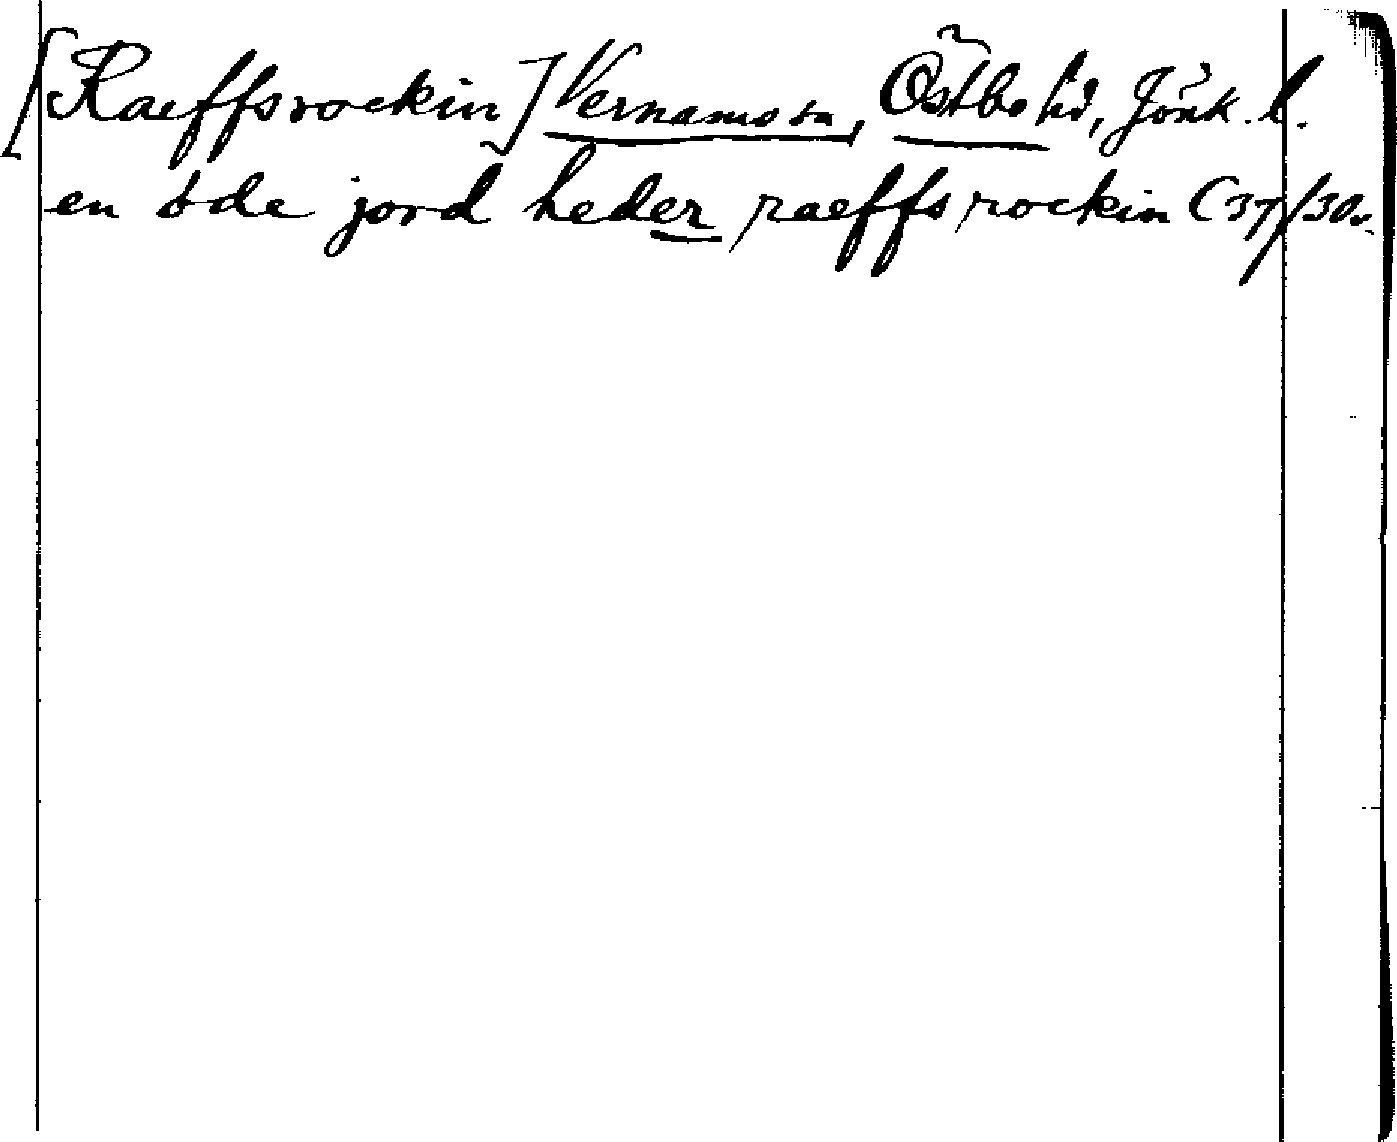 [Raeffsrockin] Vernamo sn, Östbo hd, Jönk. l.
en øde jord heder raeffs rockin C 37/30v.